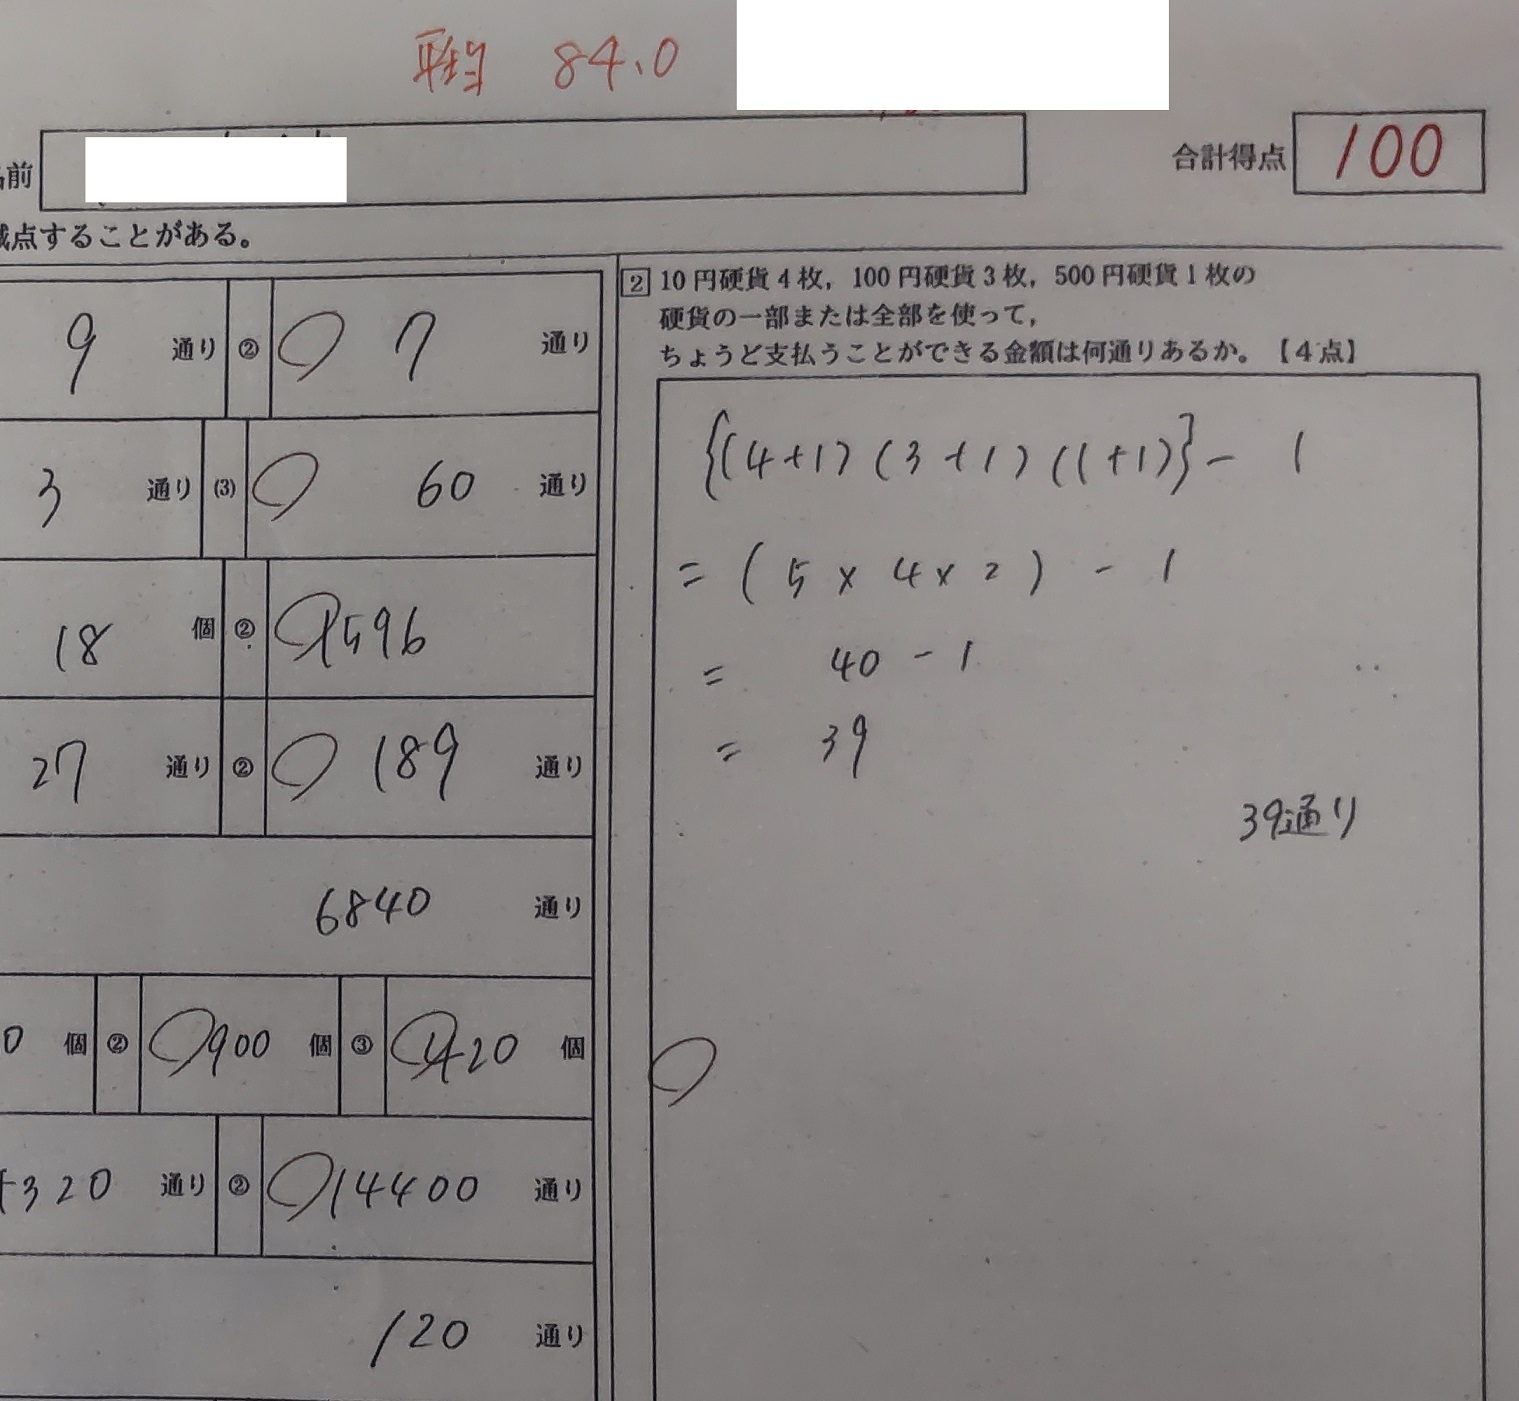 平均 84.0
名前
合計得点 100
減点することがある。
9 通り ② 7 通り
3 通り (3) 60 通り
18 個 ② 1596
27 通り ② 189 通り
6840 通り
0 個 ② 900 個 ③ 420 個
4320 通り ② 14400 通り
120 通り
2 10円硬貨4枚，100円硬貨3枚，500円硬貨1枚の
硬貨の一部または全部を使って，
ちょうど支払うことができる金額は何通りあるか。【4点】
{(4+1)(3+1)(1+1)}-1
=(5×4×2)-1
= 40-1
= 39
39通り